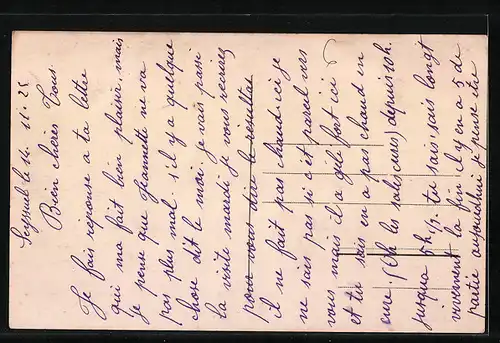 Seyssuel le 11. 11. 25
Bien chères Tous.
Je fais reponse a ta lettre
qui ma fait bien plaisir mais
je pense que Jeannette ne va
pas plus mal s'il y a quelque
chose dit le moi je vais passé
la visite mardi je vous recrirez
pour vous dire le resultat
il ne fait pas chaud ici je
ne sais pas si c'est pareil vers
vous mais il a gelé fort ici
et tu sais on a pas chaud en
cure. (Oh les salicieurs) depuis 10 h.
jusqua 5 h 1/2. tu sais sais longt
vivement la fin il y en a 5 de
partie aujourdhui je pense etre